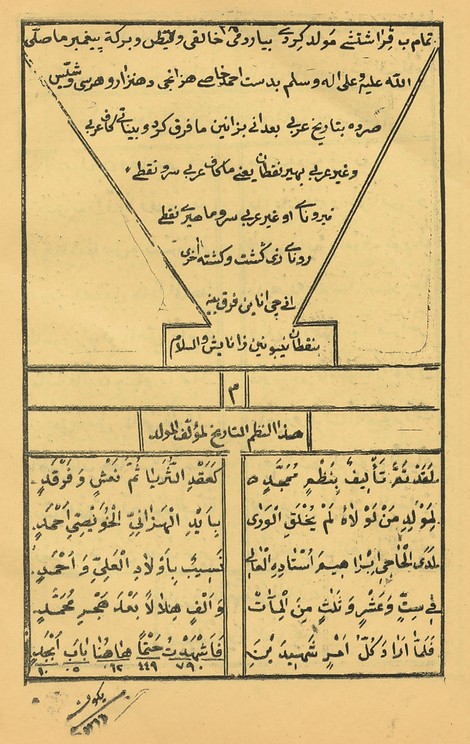 تمام ب قراشتنے مولد کردی بیاردقی خالقی وفیض وبرکة پیغمبر ما صلی
الله علیه وعلی اله وسلم بدست احمد خاصے هزانجی دهنزار و هرسی وشیّس
صرده بتاریخ عربی بعدانی بزانین ما فرق کرد وبیناتے کاف عربی
وغیر عربی بهیر نقطان یعنے ما کاف عربی سر ونقطے
نیروناے او غیر عربی سروما هیرے نقطے
روناے زی کشت وکشته اخری
انے چی اناین فرق بینه
بنقطان نیبونین زانایش والسلام
م
هذا النظم التاریخ لمؤلف المولد
لَقَدْ تَمَّ تَأْلِیفٌ بِنَظْمٍ مُمَجَّدٍ كَعَقْدِ الثُّرَیَّا ثُمَّ نَعْشٍ وَفَرْقَدٍ
لِمَوْلِدِ مَنْ لَوْلَاهُ لَمْ یُخْلَقِ الْوَرَى بِأَیْدِ الْهَزَانِیِّ الْخَوِیْصِیِّ اَحْمَدٍ
لَدَى الْحَاجِی اِبْرَاهِیمَ اُسْتَادِهِ الْعَالِی نَسِیبٌ بِاَوْلَادِ الْعَلِیِّ وَاَحْمَدٍ
فِی سِتٍّ وَعَشْرٍ وَثَلٰثٍ مِنَ الْمِآتِ وَاَلْفٍ هِلَالًا بَعْدَ هَجْرِ مُحَمَّدٍ
فَلَمَّا اَرَادَ كُلُّ اَمْرٍ شَهِیدَیْنِ فَاَشْهَدْتُ حَتْمًا هَاهُنَا بَابَ اَبْجَدٍ
٧٩٠ ٤٤٩ ٦٢ ٥ ١٠
یکون